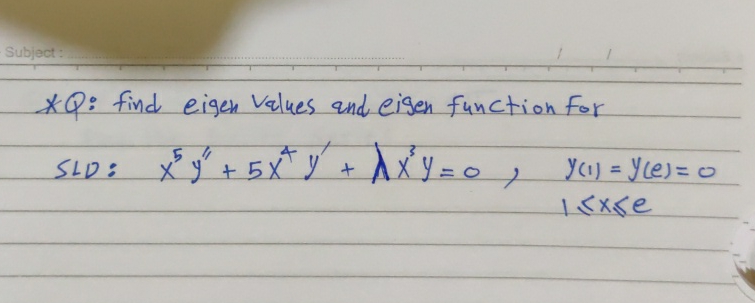 Subject:
*Q: find eigen values and eigen function for
SLD: x⁵y″ + 5x⁴y′ + λx³y = 0 , y(1) = y(e) = 0
1≤x≤e